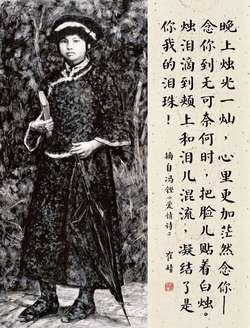 晚上烛光一灿,心里更加茫然念你——
念你到无可奈何时,把脸儿贴着白烛。
烛泪滴到颊上和泪儿混流,凝结了是
你我的泪珠!
摘自冯铿《爱情诗》